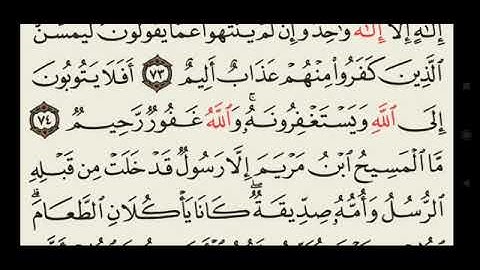 إِلَٰهٍ إِلَّآ إِلَٰهٌ وَٰحِدٌ وَإِن لَّمْ يَنتَهُوا۟ عَمَّا يَقُولُونَ لَيَمَسَّنَّ
ٱلَّذِينَ كَفَرُوا۟ مِنْهُمْ عَذَابٌ أَلِيمٌ ٧٣ أَفَلَا يَتُوبُونَ
إِلَى ٱللَّهِ وَيَسْتَغْفِرُونَهُۥۚ وَٱللَّهُ غَفُورٌ رَّحِيمٌ ٧٤
مَّا ٱلْمَسِيحُ ٱبْنُ مَرْيَمَ إِلَّا رَسُولٌ قَدْ خَلَتْ مِن قَبْلِهِ
ٱلرُّسُلُ وَأُمُّهُۥ صِدِّيقَةٌۖ كَانَا يَأْكُلَانِ ٱلطَّعَامَۗ